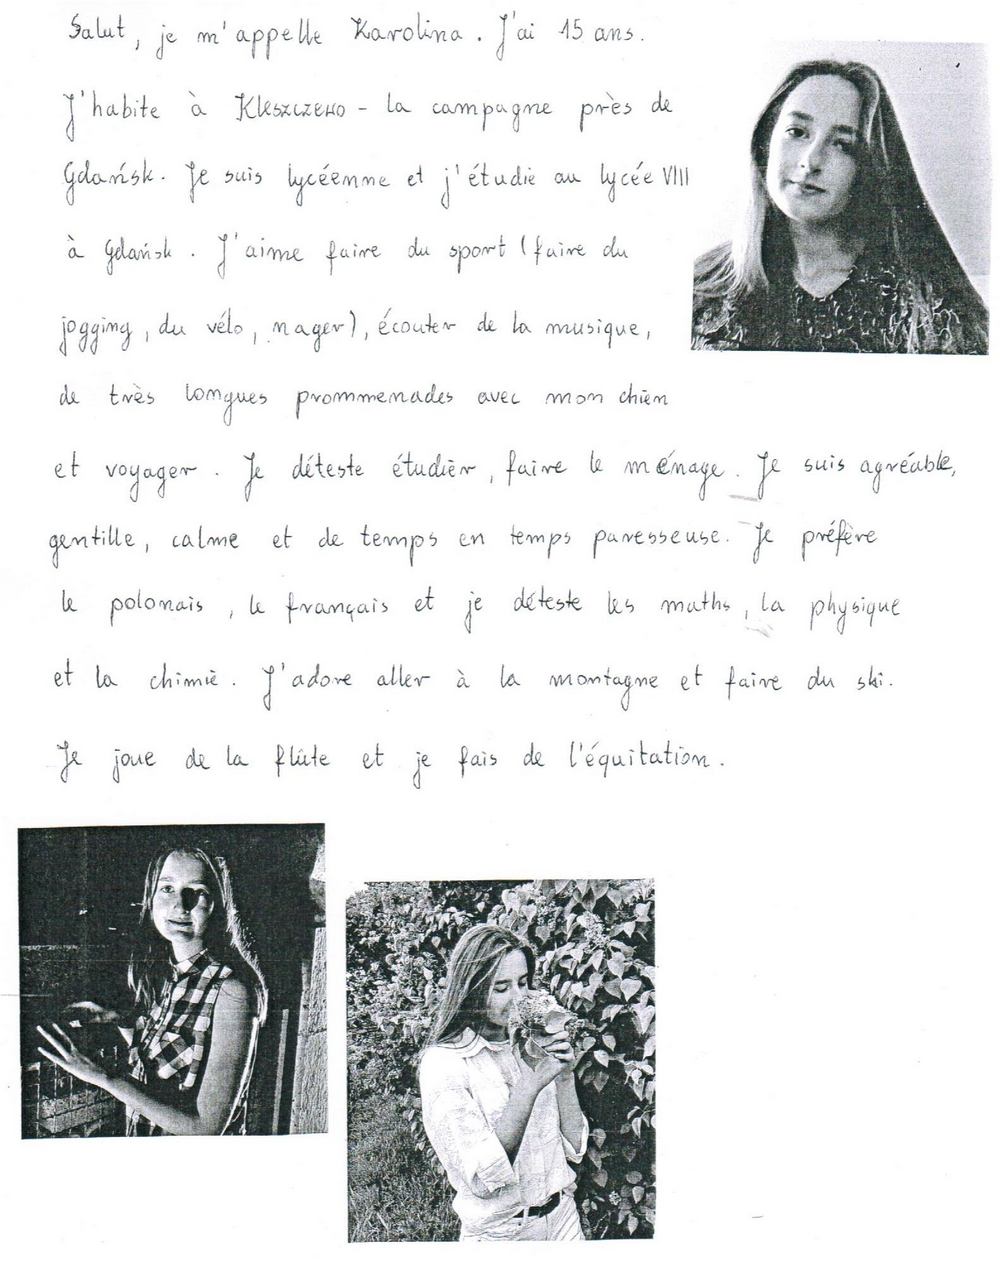 Salut, je m'appelle Karolina. J'ai 15 ans.
J'habite à Kleszczewo - la campagne près de
Gdańsk. Je suis lycéenne et j'étudie au lycée VIII
à Gdańsk. J'aime faire du sport (faire du
jogging, du vélo, nager), écouter de la musique,
de très longues prommenades avec mon chien
et voyager. Je déteste étudier, faire le ménage. Je suis agréable,
gentille, calme et de temps en temps paresseuse. Je préfère
le polonais, le français et je déteste les maths, la physique
et la chimie. J'adore aller à la montagne et faire du ski.
Je joue de la flûte et je fais de l'équitation.